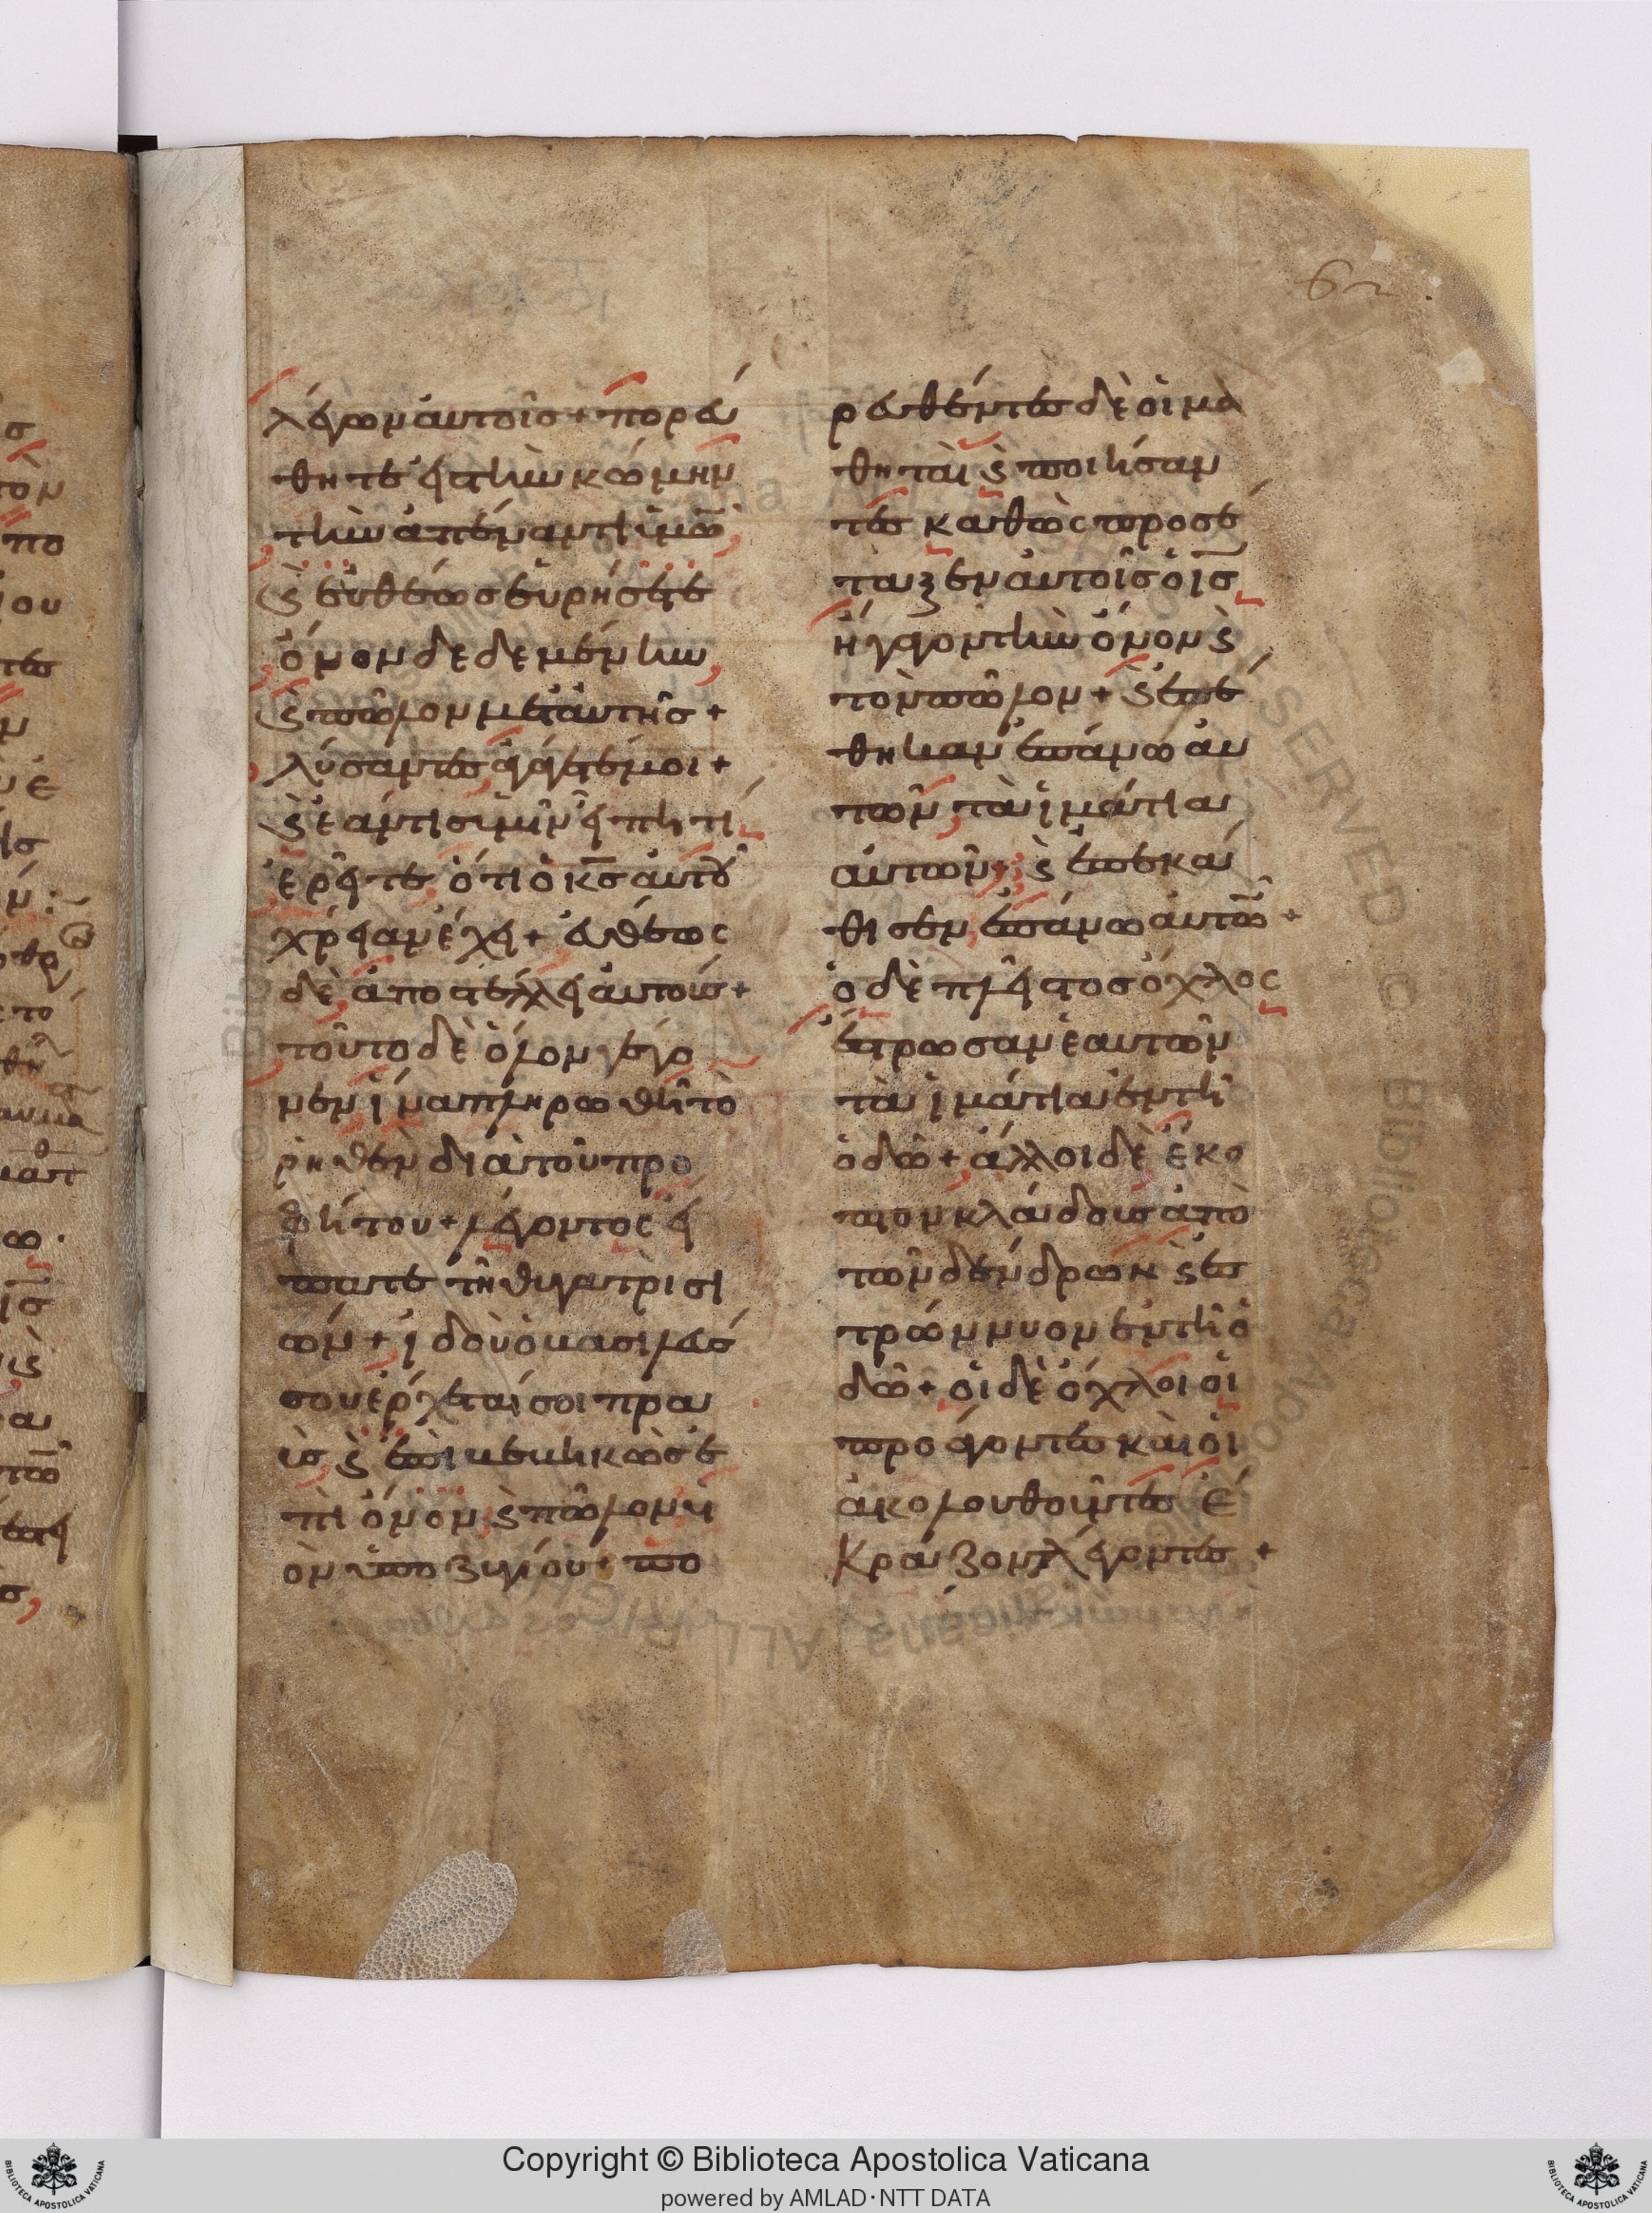 62
λέγων αυτοῖσ + πορευ
θητε εἰστὴν κώμην
τὴν ἀπέναντι ϋμῶ
ϛ ἐυθέωσ ἑυρήσετε
ὄνον δεδεμένην
ϛ πῶλον μετἀυτῆσ +
λύσαντεσ ἀγάγετέμοι +
ϛ ἐάντισ ὑμῖν εἴπη τί
ἐρεῖτε ὅτι ὁ κσ ἀυτοῦ
χρείαν ἔχει + ἐυθέωσ
δὲ ἀποστέλλει ἀυτούσ +
τοῦτο δὲ ὅλον γέγο
νεν ἵνα πληρωθῆ τὸ
ῥηθὲν διὰ τοῦ προ
φήτου + λέγοντοσ εἴ
πατε τῆ θυγατρὶ σι
ών + ἰδοὺ ὁ βασιλεύσ
σου ἔρχεταί σοι πραυ
ϋσ ϛ ἐπιβεβηκὼσ ἐ
πὶ ὄνον ϛ πῶλον ϋι
ὸν ὑποζυγίου + πο
ρευθέντεσ δὲ ὁι μα
θηταὶ ϛ ποιήσαν
τεσ καθὼσ προσέ
ταξεν ἀυτοῖσ ὁ ισ
ἤγαγον τὴν ὄνον ϛ
τὸν πῶλον + ϛ ἐπέ
θηκαν ἐπάνω ἀυ
τῶν τὰ ἱμάτια
ἀυτῶν + ϛ ἐπεκά
θισεν ἐπάνω ἀυτῶ +
ὁ δὲ πλεῖστοσ ὄχλοσ
ἔστρωσαν ἑαυτῶν
τὰ ἱμάτια ἐν τῆ
ὁδῶ + ἄλλοι δὲ ἔκο
πτον κλάδουσ ἀπὸ
τῶν δένδρων ϛ ἐσ
τρώννυον ἐν τῆ ὁ
δῶ + ὁι δὲ ὄχλοι ὁι
προάγοντεσ καὶ ὁι
ἀκολουθοῦντεσ ἔ
κραζον λέγοντεσ +
Copyright © Biblioteca Apostolica Vaticana
powered by AMLAD·NTT DATA